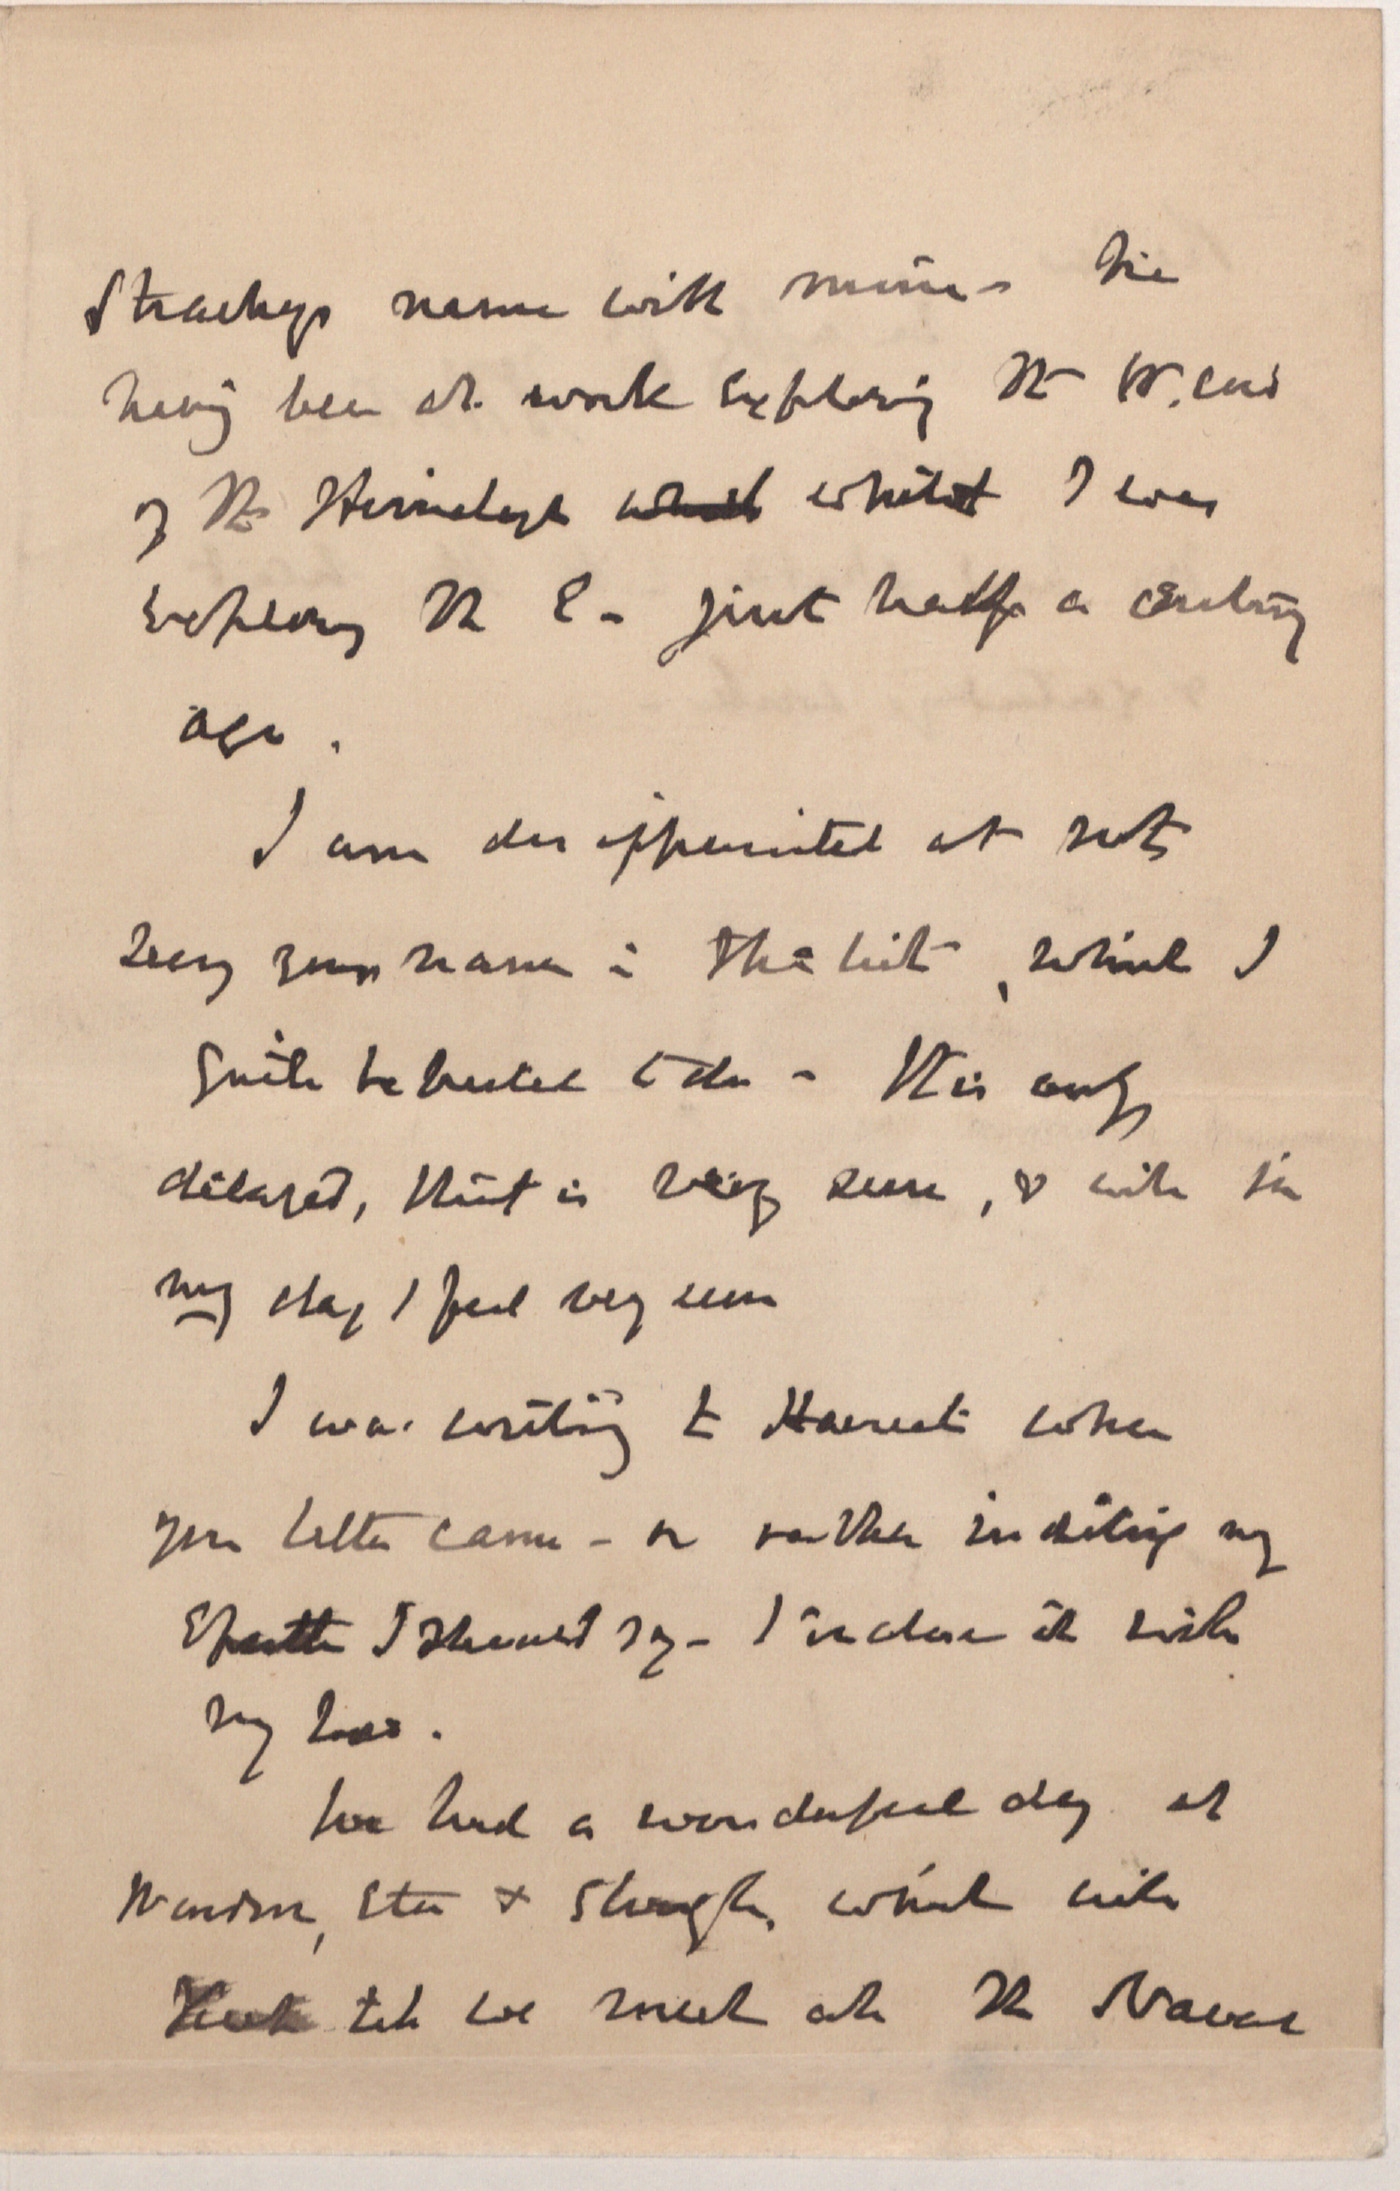 Stracheys name with mine – he
having been at work exploring the W. end
of the Himalaya whilst I was
exploring the E – just half a century
ago.
I am disappointed at not
seeing your name in the list, which I
quite expected to do – It is only
delayed, that is very sure, & will in
my day I feel very sure
I was writing to Harriet when
your letter came – or rather inditing my
Epistle I should say – I inclose it with
my love.
We had a wonderful day at
Windsor, Eton & Slough, which will
keep till we meet at the Naval